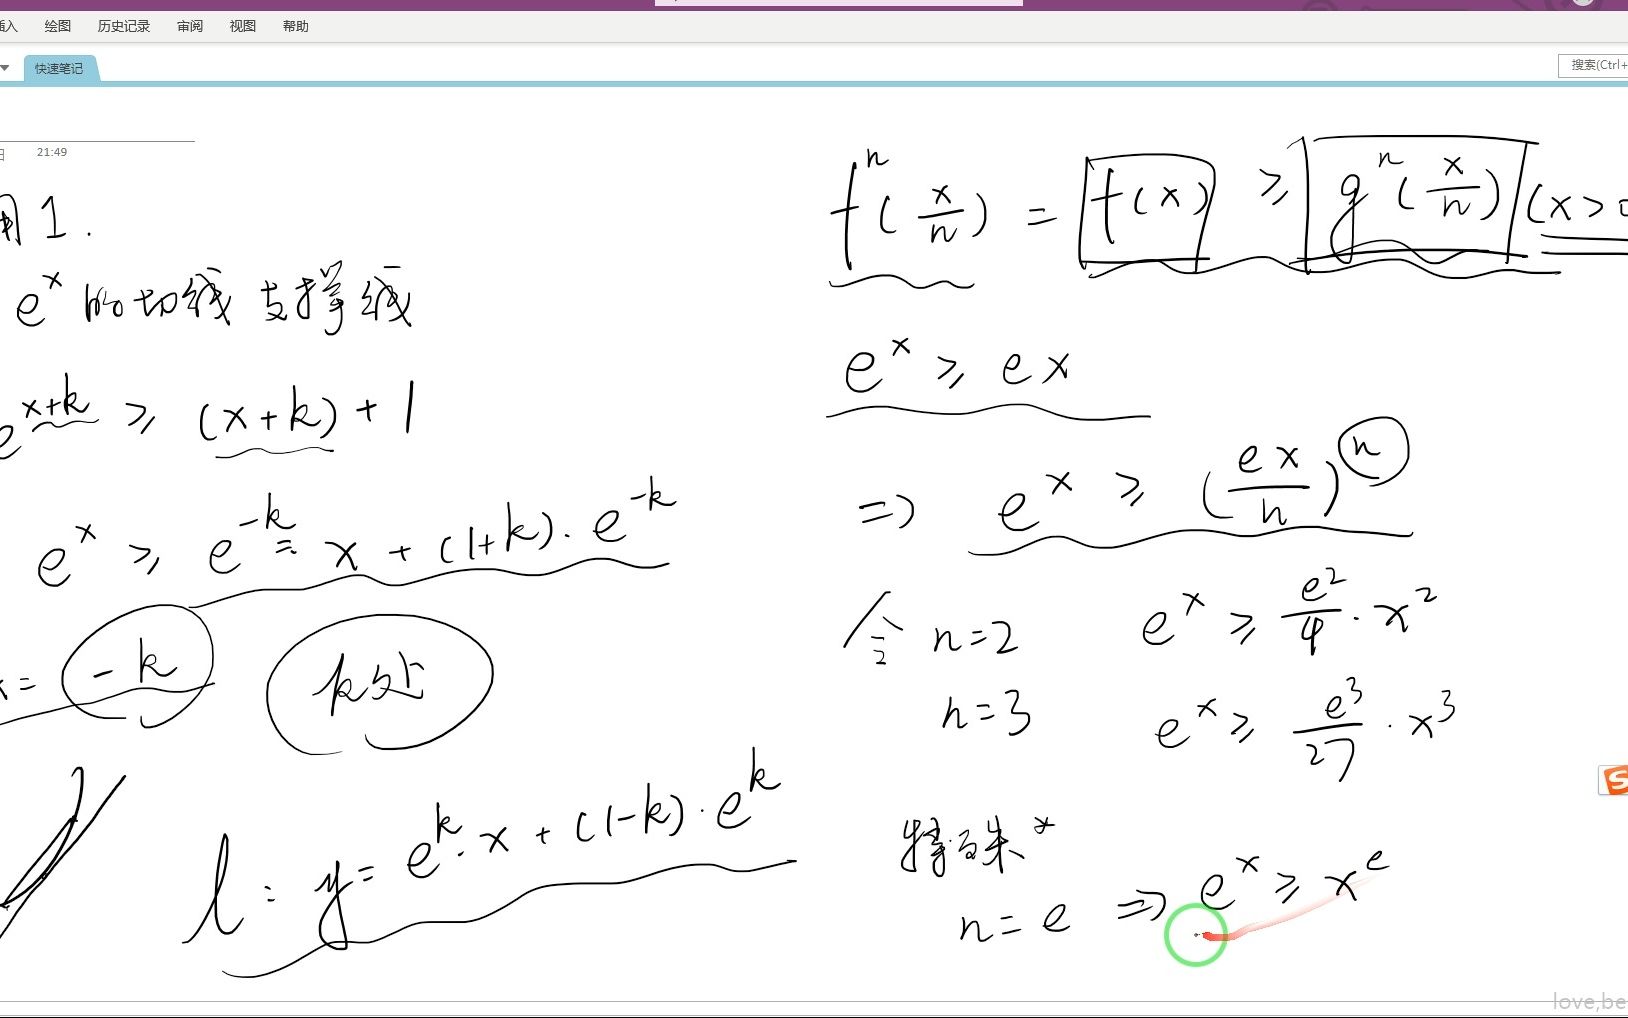 绘图 历史记录 审阅 视图 帮助
快速笔记
搜索(Ctrl+
21:49
用1.
e^x 的切线 支撑线
e^{x+k} ≥ (x+k)+1
e^x ≥ e^{-k} x + (1+k)·e^{-k}
= -k
k处
l: y = e^k·x + (1-k)·e^k
f^n(x/n) = f(x) ≥ g^n(x/n) (x>0
e^x ≥ ex
⇒ e^x ≥ (ex/n)^n
令 n=2 e^x ≥ e^2/4 · x^2
n=3 e^x ≥ e^3/27 · x^3
特殊*
n=e ⇒ e^x ≥ x^e
love,be